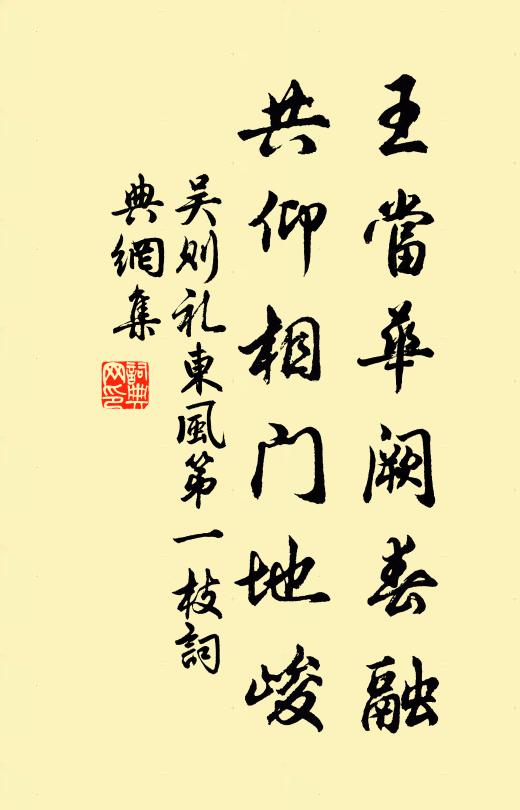 王當華阙春融
共仰相门地峻
吴则礼東風第一枝詞
典網集
詞典网印